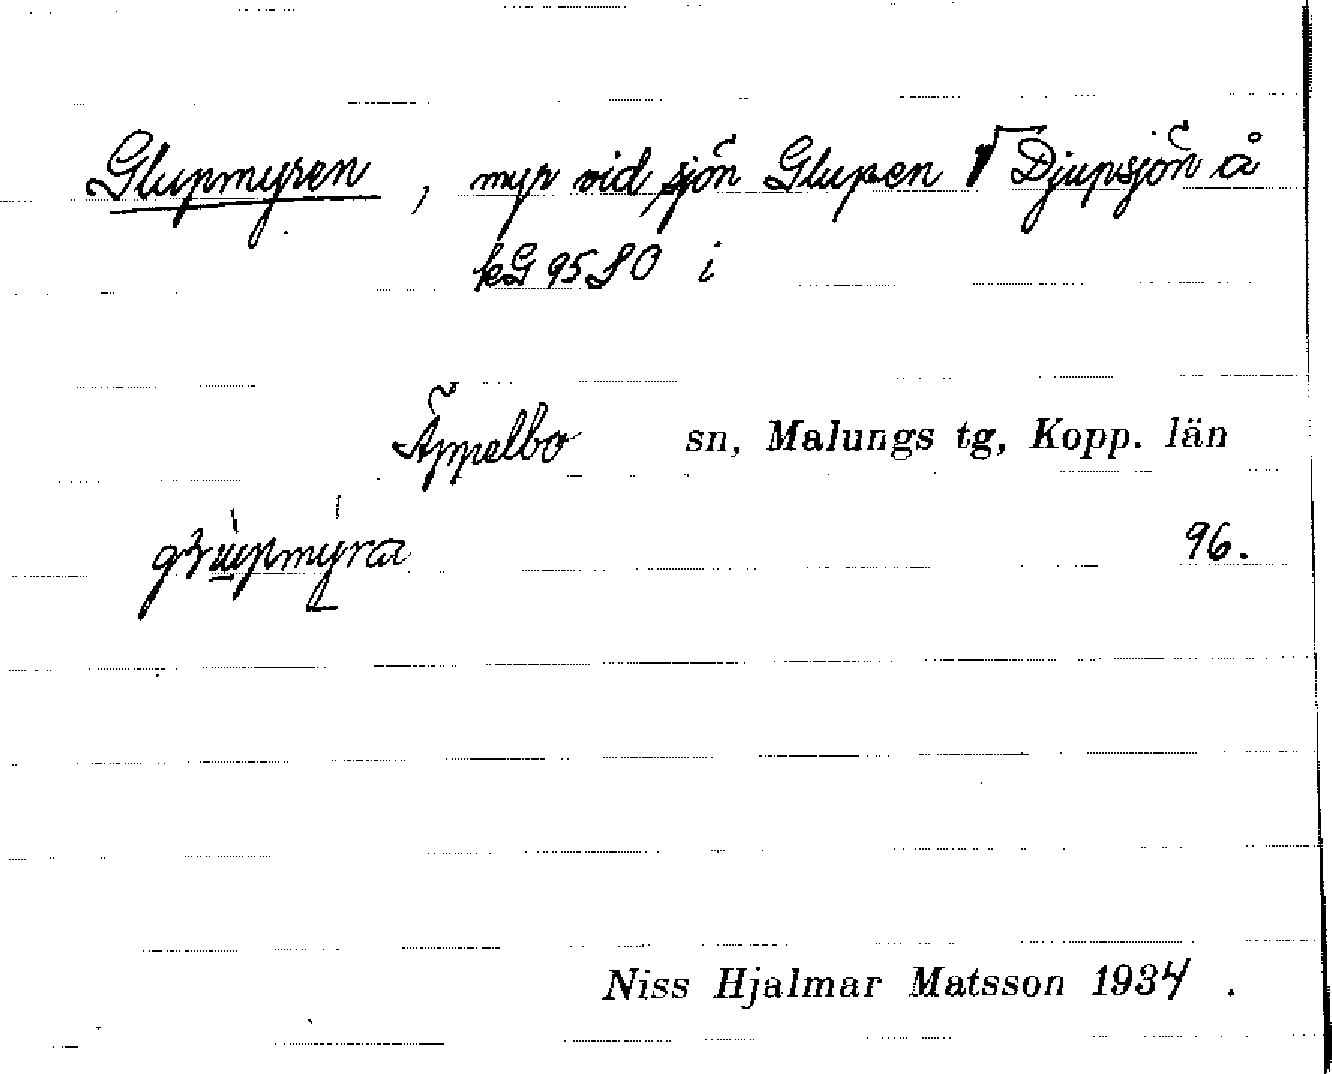 Glupmyren, myr vid sjön Glupen V Djupsjön å
kG 95 SO i
Äppelbo sn, Malungs tg, Kopp. län
96.
Niss Hjalmar Matsson 1934.